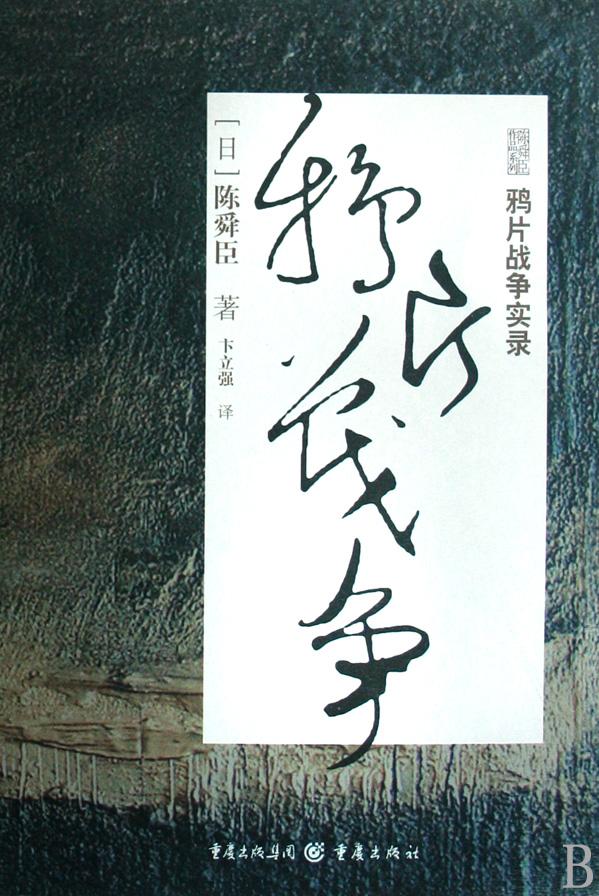 陈舜臣
作品系列
鸦片战争实录
鸦片战争
[日]陈舜臣 著
卞立强 译
重庆出版集团 重庆出版社
B